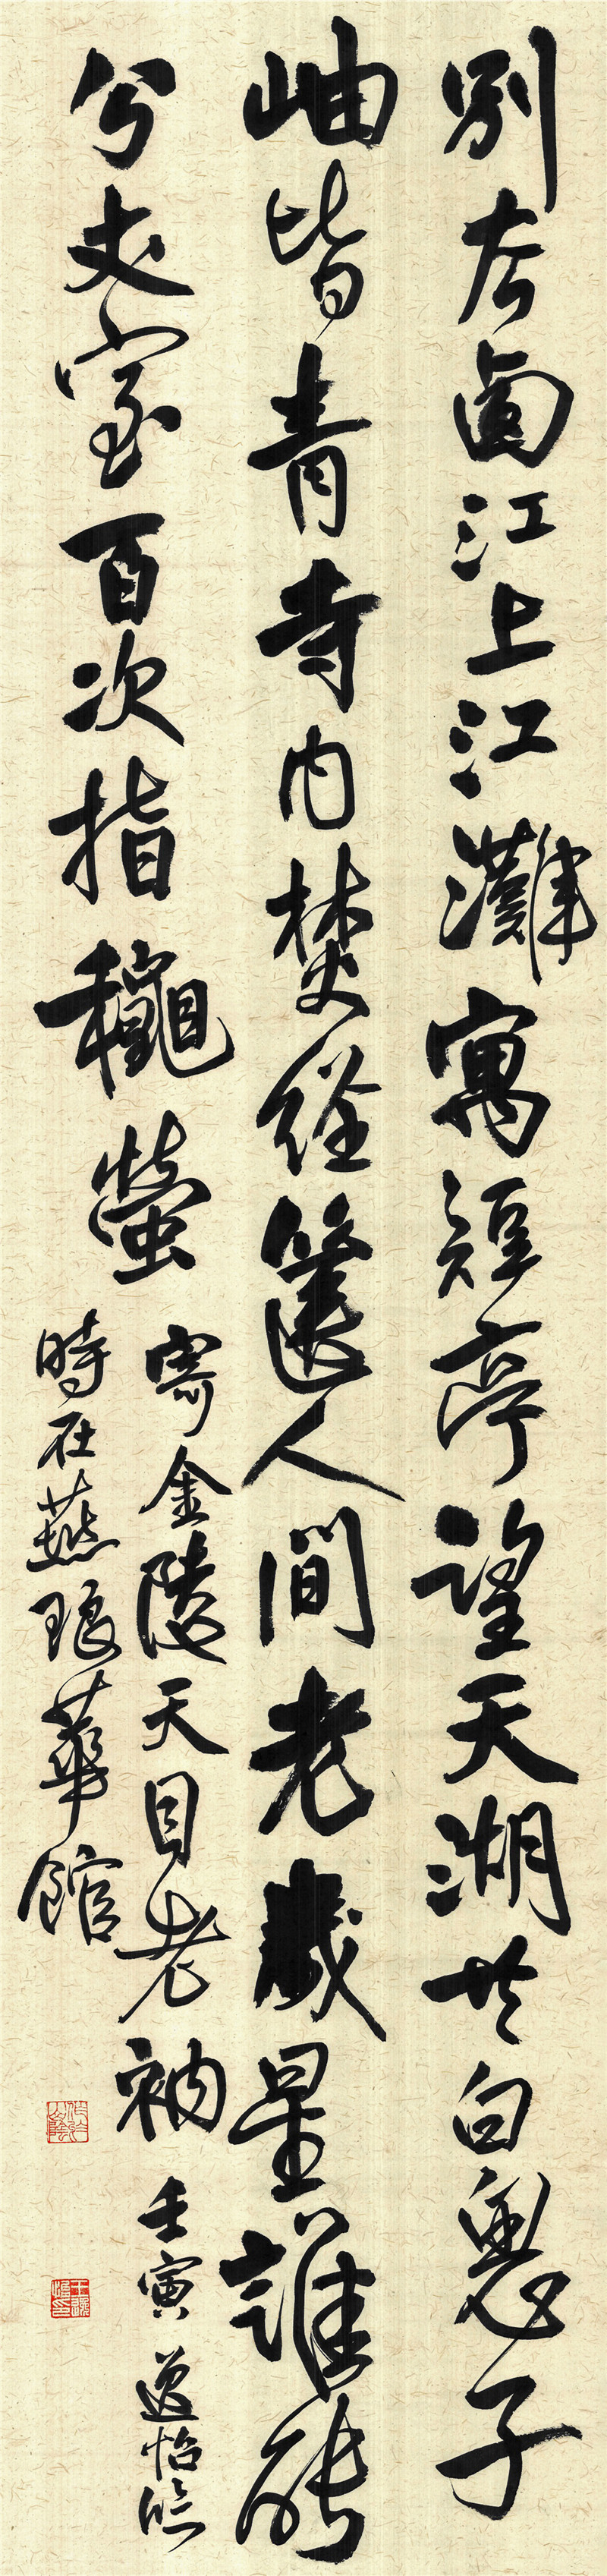 別去西江上江灘寓短亭望天湖共白思子
岫皆青寺內焚經篋人間老歲星誰能
兮丈室百次指穐螢
寄金陵天目老衲 壬寅 逸怡臨
時在燕琅華館